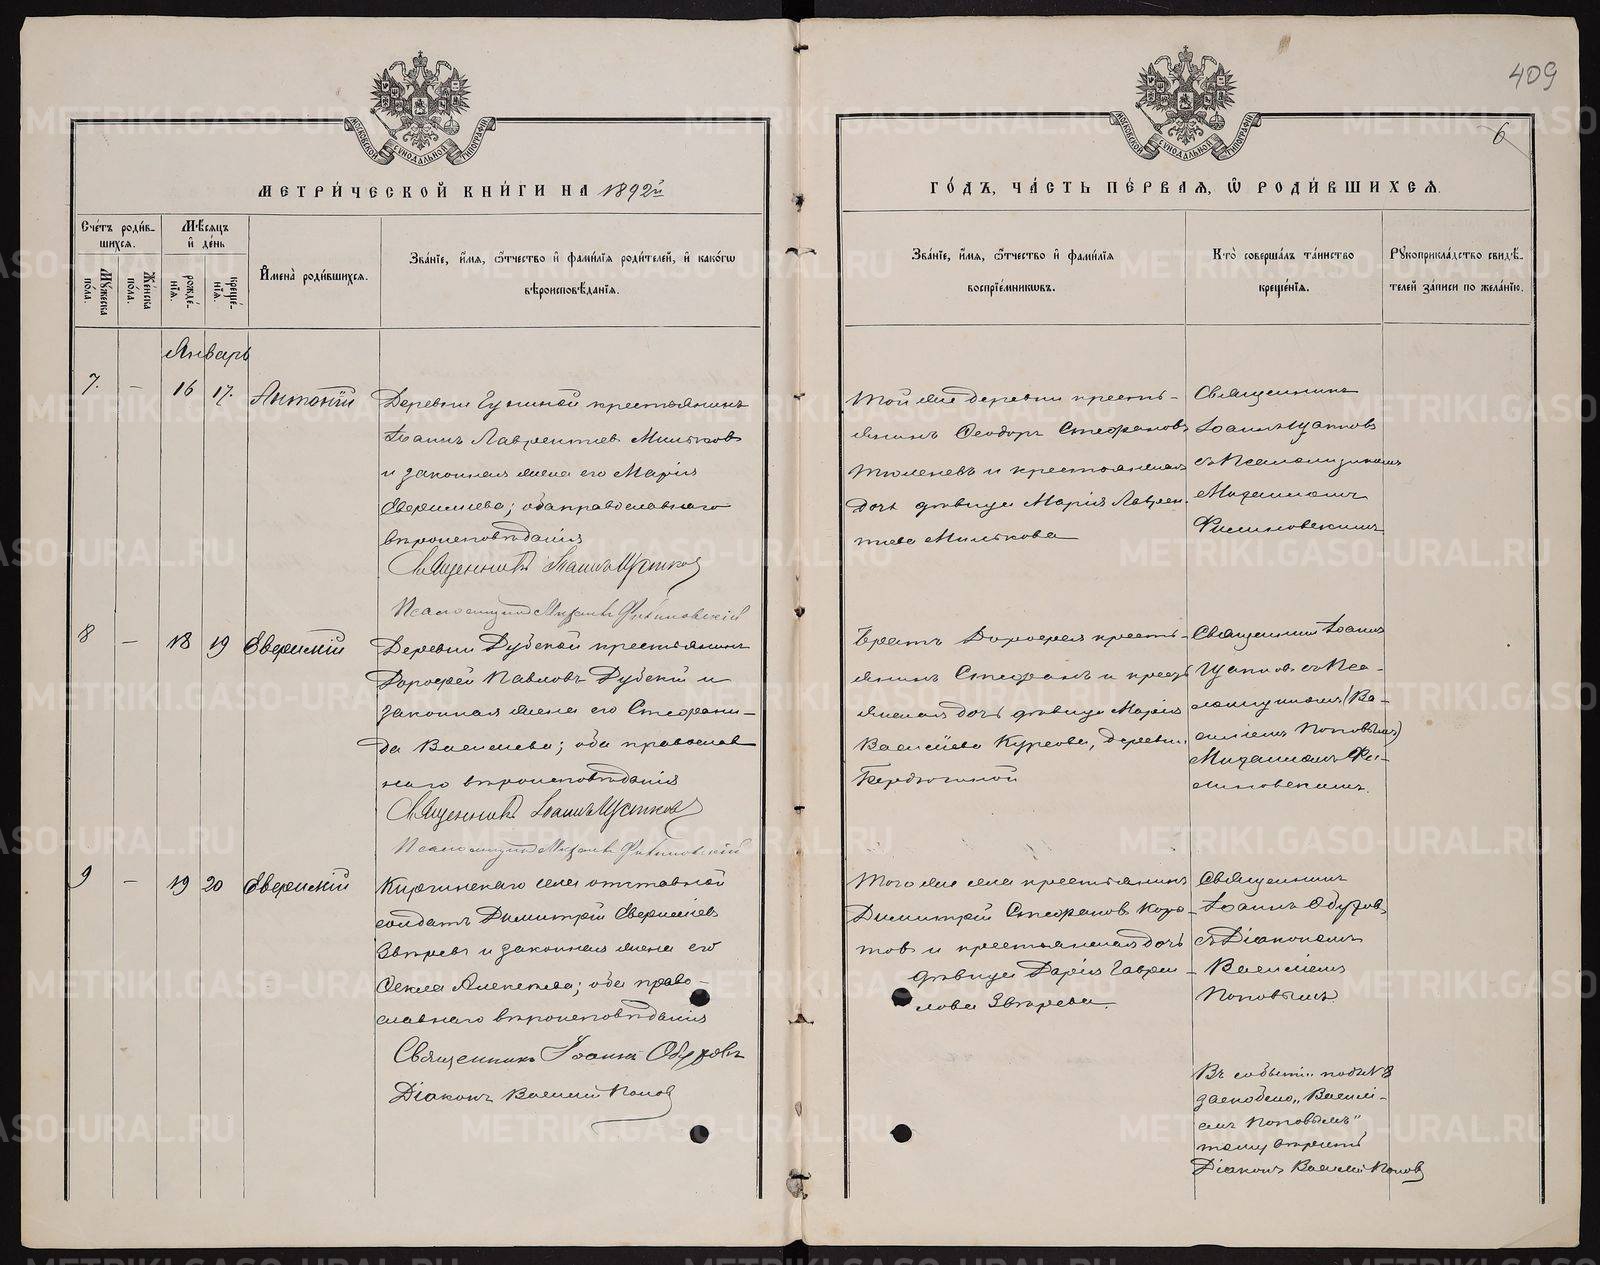 409
6
МОСКОВСКОЙ СѴНОДАЛЬНОЙ ТИПОГРАФІИ
МОСКОВСКОЙ СѴНОДАЛЬНОЙ ТИПОГРАФІИ
МЕТРИ́ЧЕСКОЙ КНИ́ГИ НА 1892й
ГО́ДЪ, ЧА́СТЬ ПЕ́РВАЯ, Ѿ РОДИ́ВШИХСЯ.
Сче́тъ роди́в-
шихся.
Мꙋ́жеска
по́ла.
Же́нска
по́ла.
Мѣ́сяцъ
и҆ де́нь
рожде́-
нїя.
креще́-
нїя.
И҆мена̀ роди́вшихся.
Зва́нїе, и҆́мя, ѻ҆́тчество и҆ фами́лїя роди́телей, и҆ како́гѡ
вѣроисповѣ́данїя.
Зва́нїе, и҆́мя, ѻ҆́тчество и҆ фами́лїя
воспрїе́мникѡвъ.
Кто̀ соверша́лъ та́инство
креще́нїя.
Рꙋкоприкла́дство свидѣ́-
телей за́писи по жела́нїю.
Январь
7. — 16 17. Антоній
Деревни Гуниной крестьянинъ
Іоаннъ Лаврентіевъ Мильковъ
и законная жена его Марія
; оба православнаго
вѣроисповѣданія
Священникъ Іоаннъ
Псаломщикъ Михаилъ
Той же деревни кресть-
янинъ Ѳеодоръ Стефановъ
Тюленевъ и крестьянская
дочь дѣвица Марія Лаврен-
тьева Милькова
Священникъ
Іоаннъ
съ Псаломщикомъ
Михаиломъ
8 — 18 19
Деревни Дубской крестьянинъ
Дорофей Павловъ Дубскій и
законная жена его Стефани-
да Васильева; оба православ
наго вѣроисповѣданія
Священникъ Іоаннъ
Псаломщикъ Михаилъ
Братъ Дорофея кресть-
янинъ Стефанъ и кресть
янская дочь дѣвица Марія
Васильева , деревни
Священникъ Іоаннъ
съ Пса-
ломщикомъ (Ва-
силіемъ Поповымъ)
Михаиломъ
9 — 19 20
Киргинскаго села отставной
солдатъ Димитрій
Звѣревъ и законная жена его
Ѳекла Алексѣева; оба право-
славнаго вѣроисповѣданія
Священникъ Іоаннъ
Діаконъ Василій Поповъ
Того же села крестьянинъ
Димитрій Стефановъ Коро-
товъ и крестьянская дочь
дѣвица Дарія Гаврии-
лова Звѣрева.
Священникъ
Іоаннъ
съ Діакономъ
Василіемъ
Поповымъ
Въ событіи подъ № 8
заскоблено „Василі-
емъ Поповымъ"
тому
Діаконъ Василій Поповъ
METRIKI.GASO-URAL.RU